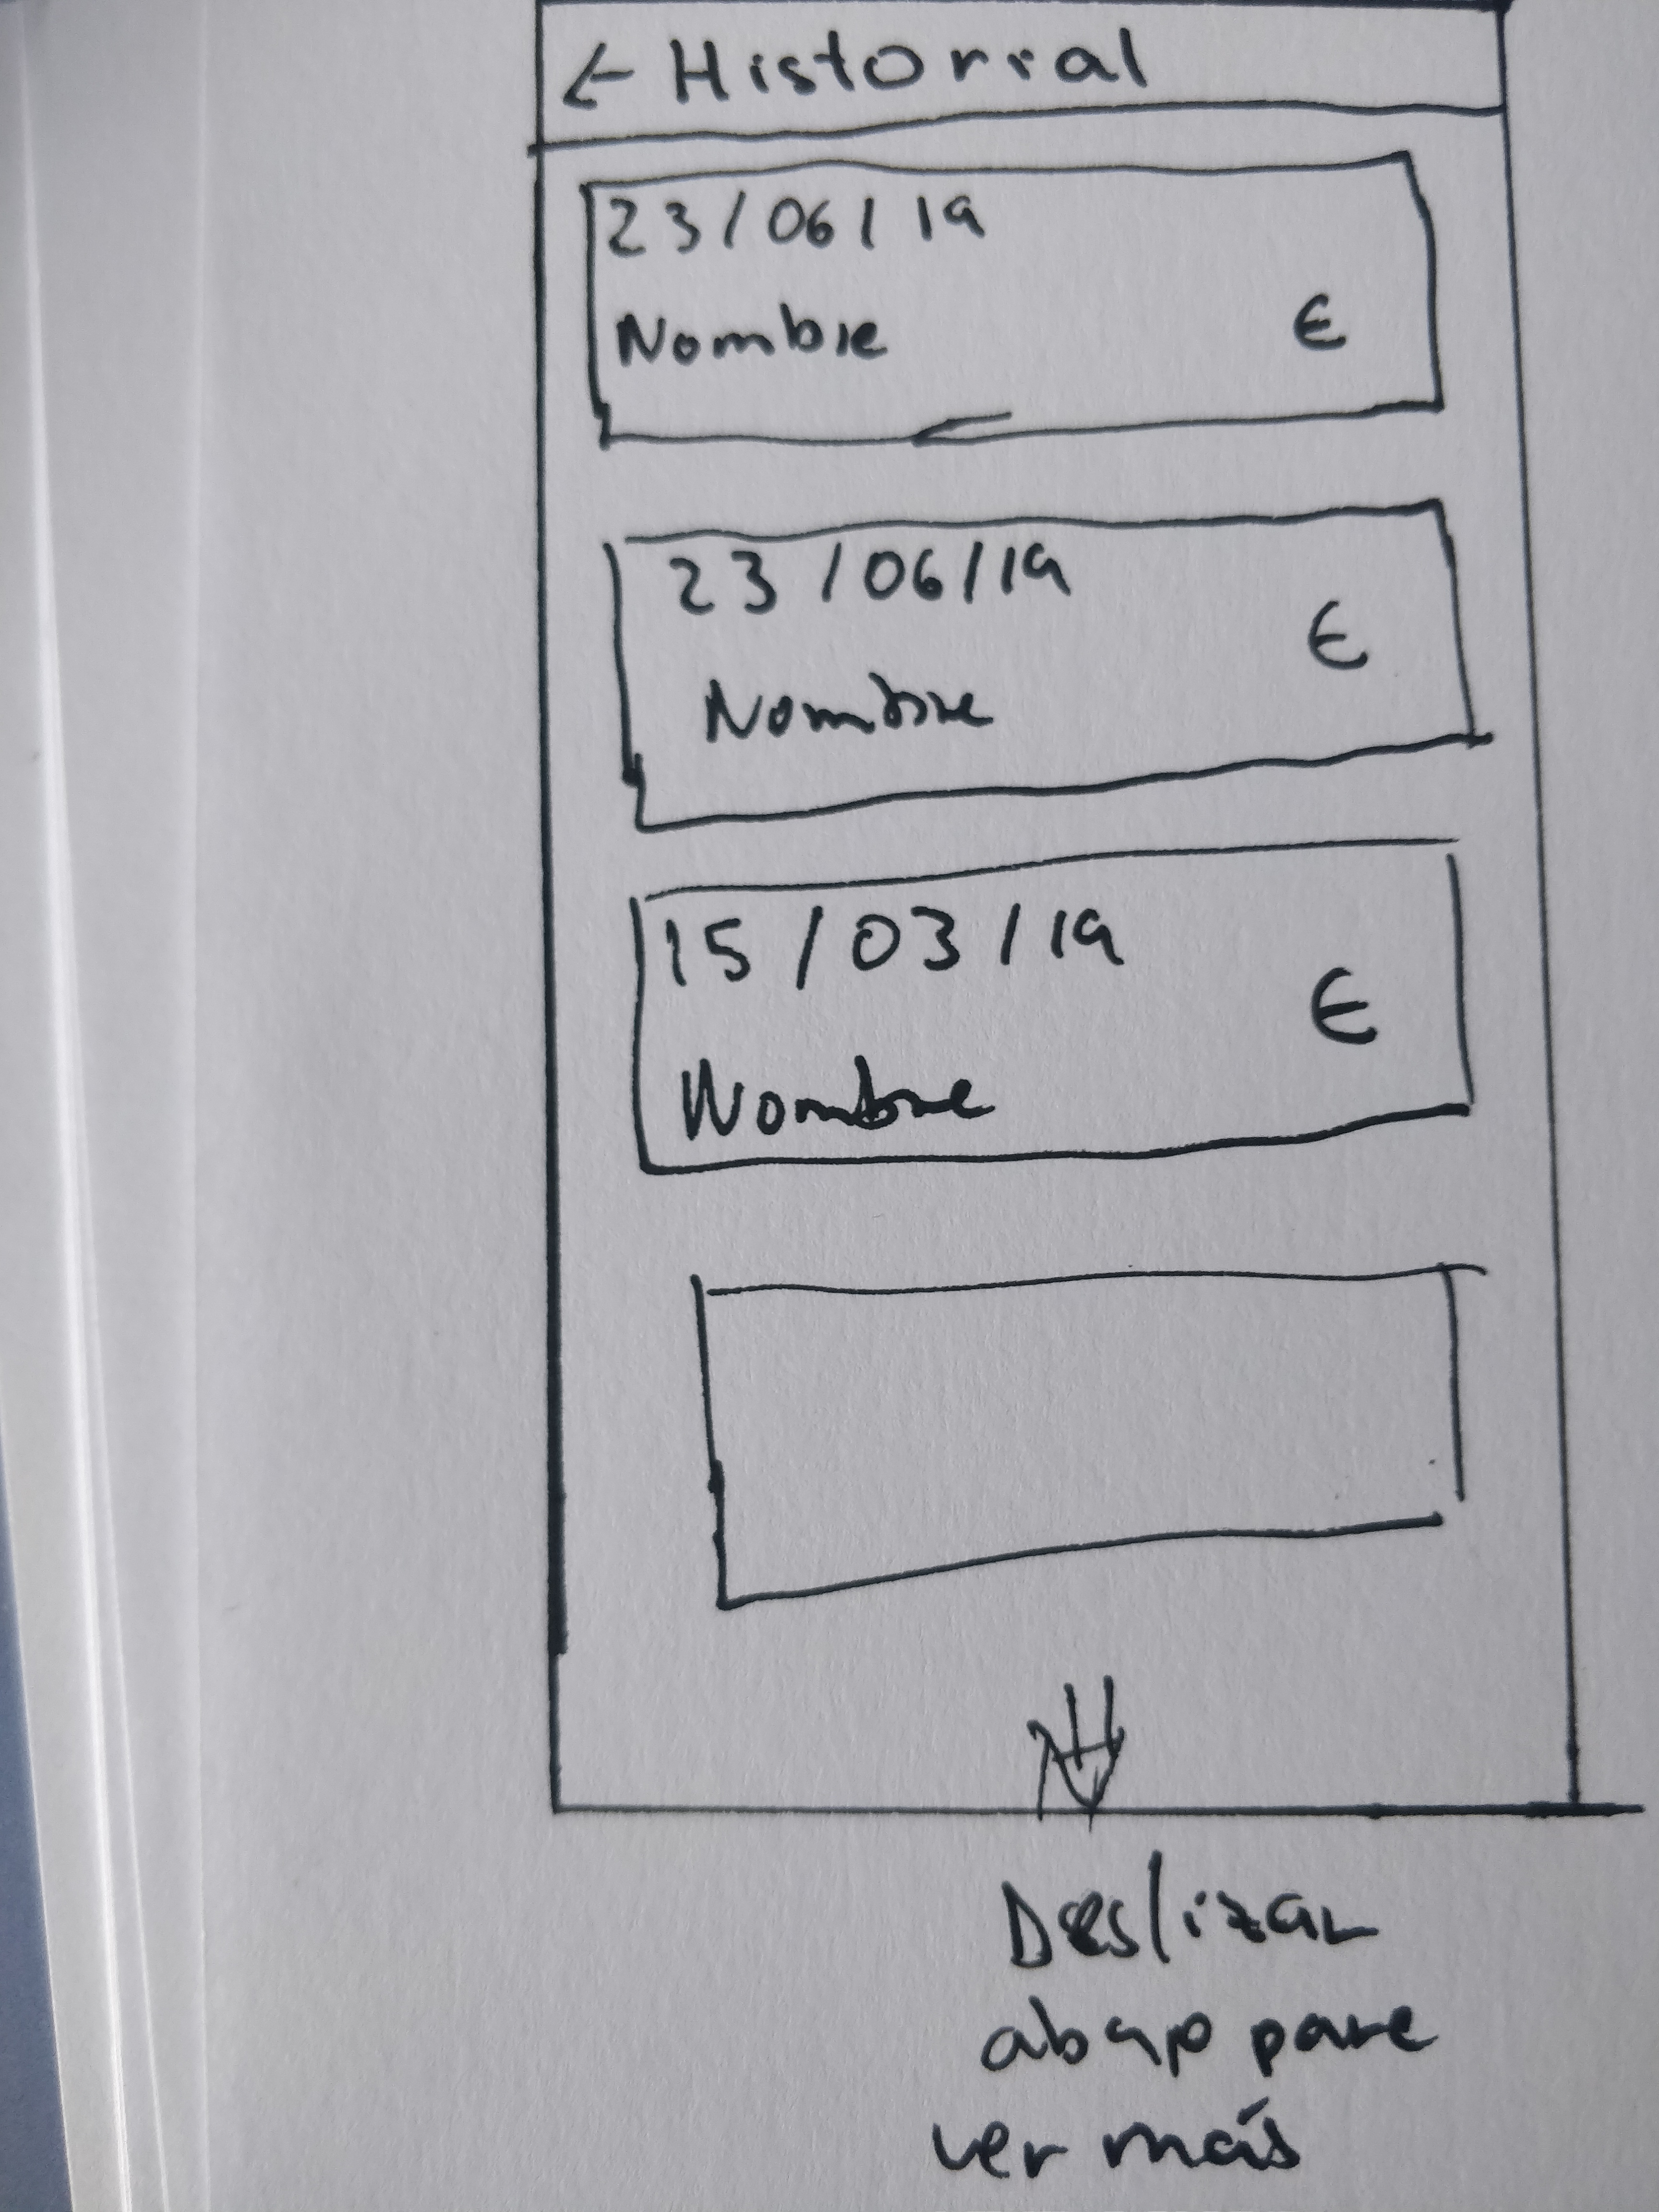 ← Historial
23/06/19
Nombre €
23/06/19
€
Nombre
15/03/19
€
Nombre
Deslizar
abajo para
ver más